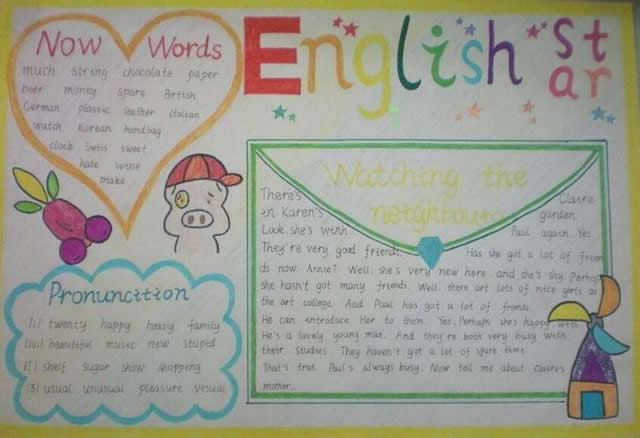 English star
Now Words
much string chocolate paper
beer money spare British
German plastic leather Italian
watch Korean handbag
clock Swiss sweet
hate wine
make
Pronuncition
twenty happy heavy family
beautiful music new stupid
shelf sugar show shopping
usual unusual pleasure
Watching the
neighbours
There's Claire
in Karen's garden.
Look. she's with Paul again. Yes.
They're very good friends. Has she got a lot of frien
ds now. Annie? Well. she's very new here and she's shy. Perhaps
she hasn't got many friends. Well. there are lots of nice girls at
the art college. And Paul has got a lot of friends
He can introduce Her to them. Yes. Perhaps she's happy with
He's a lovely young man. And they're both very busy with
their studies. They haven't got a lot of spare time
That's true. Paul's always busy. Now tell me about Claire's
mother...